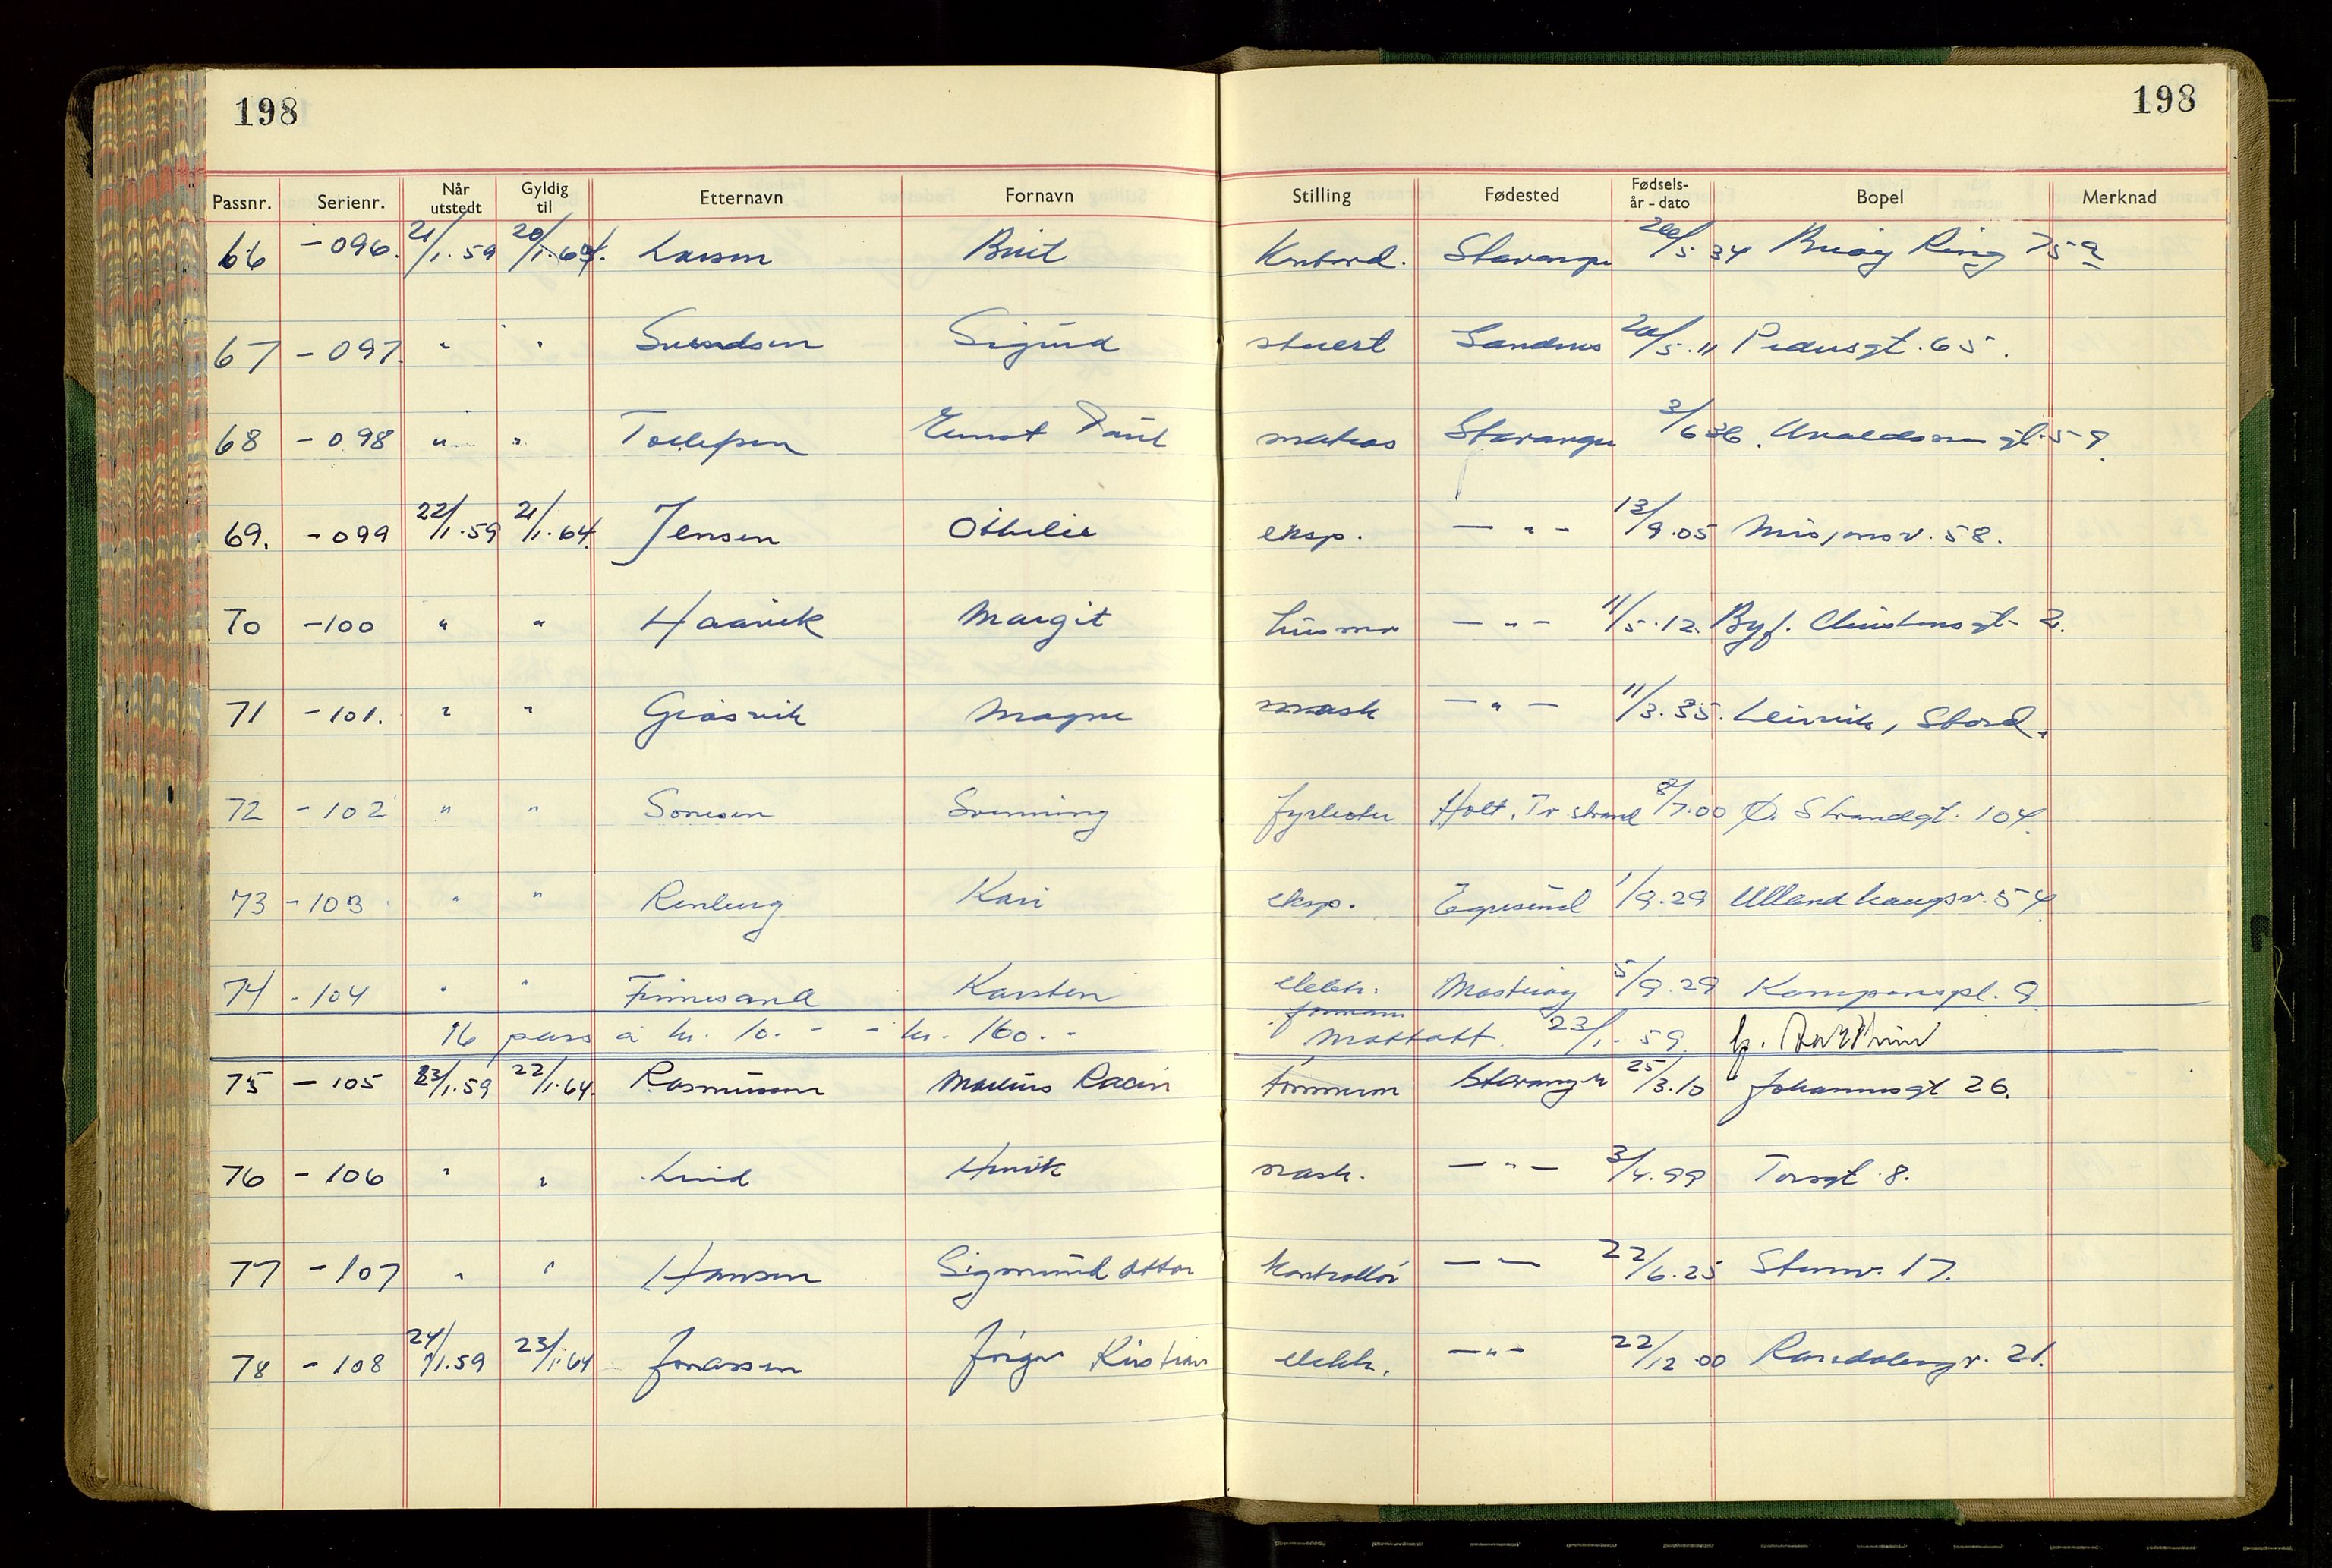 198 198
Passnr. Serienr. Når utstedt Gyldig til Etternavn Fornavn Stilling Fødested Fødsels- år - dato Bopel Merknad
66 -096. 21/1.59 20/1.64. Larsen Berit Kontord. Stavanger 26/5.34 Buøy Ring 75a
67 -097. " " Svendsen Sigurd stuert Sandnes 20/5.11 Pedersgt. 65.
68 -098 " " Tollefsen Ernst Paul matros Stavanger 3/6 36. Avaldsnesgt. 59.
69. -099 22/1.59 21/1.64. Jensen Othelie eksp. — " — 13/9.05 Misjonsv. 58.
70 -100 " " Haavik Margit husmor — " — 11/5.12. Byf. Christensgt. 2.
71 -101. " " Gråsvik Magne mask — " — 11/3.35. Leirvik, Stord.
72 -102 " " Sørensen Svenning fyrbøter Holt, Tv.strand 8/7.00 Ø. Strandgt. 104.
73 -103 " " Renberg Kari eksp. Egersund 1/9.29 Ullandhaugsv. 54.
74 -104 " " Finnesand Karsten elektr. formann Mosterøy 5/9.29 Kampenspl. 9
16 pass à kr. 10.- - kr. 160.- Mottatt. 23/1- 59.
75 -105 23/1.59 22/1.64. Rasmussen Markus Racin tømmerm Stavanger 25/3.10 Johannesgt 26.
76 -106 " " Lund Henrik mask. — " — 3/4.99 Torsgt. 8.
77 -107 " " Hansen Sigmund Ottar kontrollør — — 22/6.25 Stemv. 17.
78 -108 24/1.59 23/1.64 Jonassen Jørgen Kristian elektr. — " — 22/12.00 Randabergv. 21.